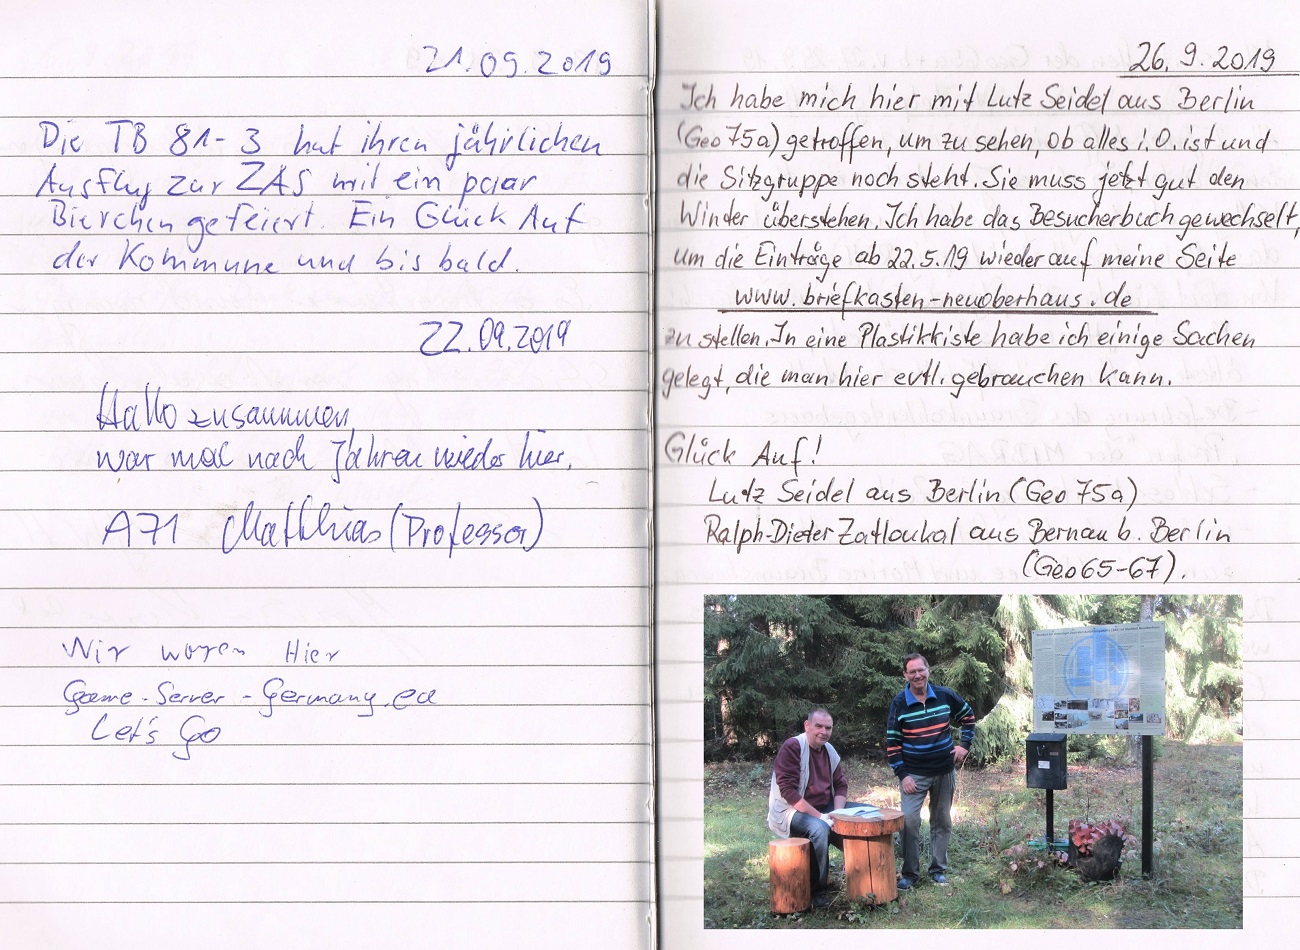 21.09.2019
Die TB 81-3 hat ihren jährlichen
Ausflug zur ZAS mit ein paar
Bierchen gefeiert. Ein Glück Auf
der Kommune und bis bald.
22.09.2019
Hallo zusammen,
war mal nach Jahren wieder hier.
A71 Matthias (Professor)
Wir waren Hier
Game-Server-Germany.eu
Let's Go
26.9.2019
Ich habe mich hier mit Lutz Seidel aus Berlin
(Geo 75a) getroffen, um zu sehen, ob alles i.O. ist und
die Sitzgruppe noch steht. Sie muss jetzt gut den
Winter überstehen. Ich habe das Besucherbuch gewechselt,
um die Einträge ab 22.5.19 wieder auf meine Seite
www.briefkasten-neuoberhaus.de
zu stellen. In eine Plastikkiste habe ich einige Sachen
gelegt, die man hier evtl. gebrauchen kann.
Glück Auf!
Lutz Seidel aus Berlin (Geo 75a)
Ralph-Dieter Zatloukal aus Bernau b. Berlin
(Geo 65-67).